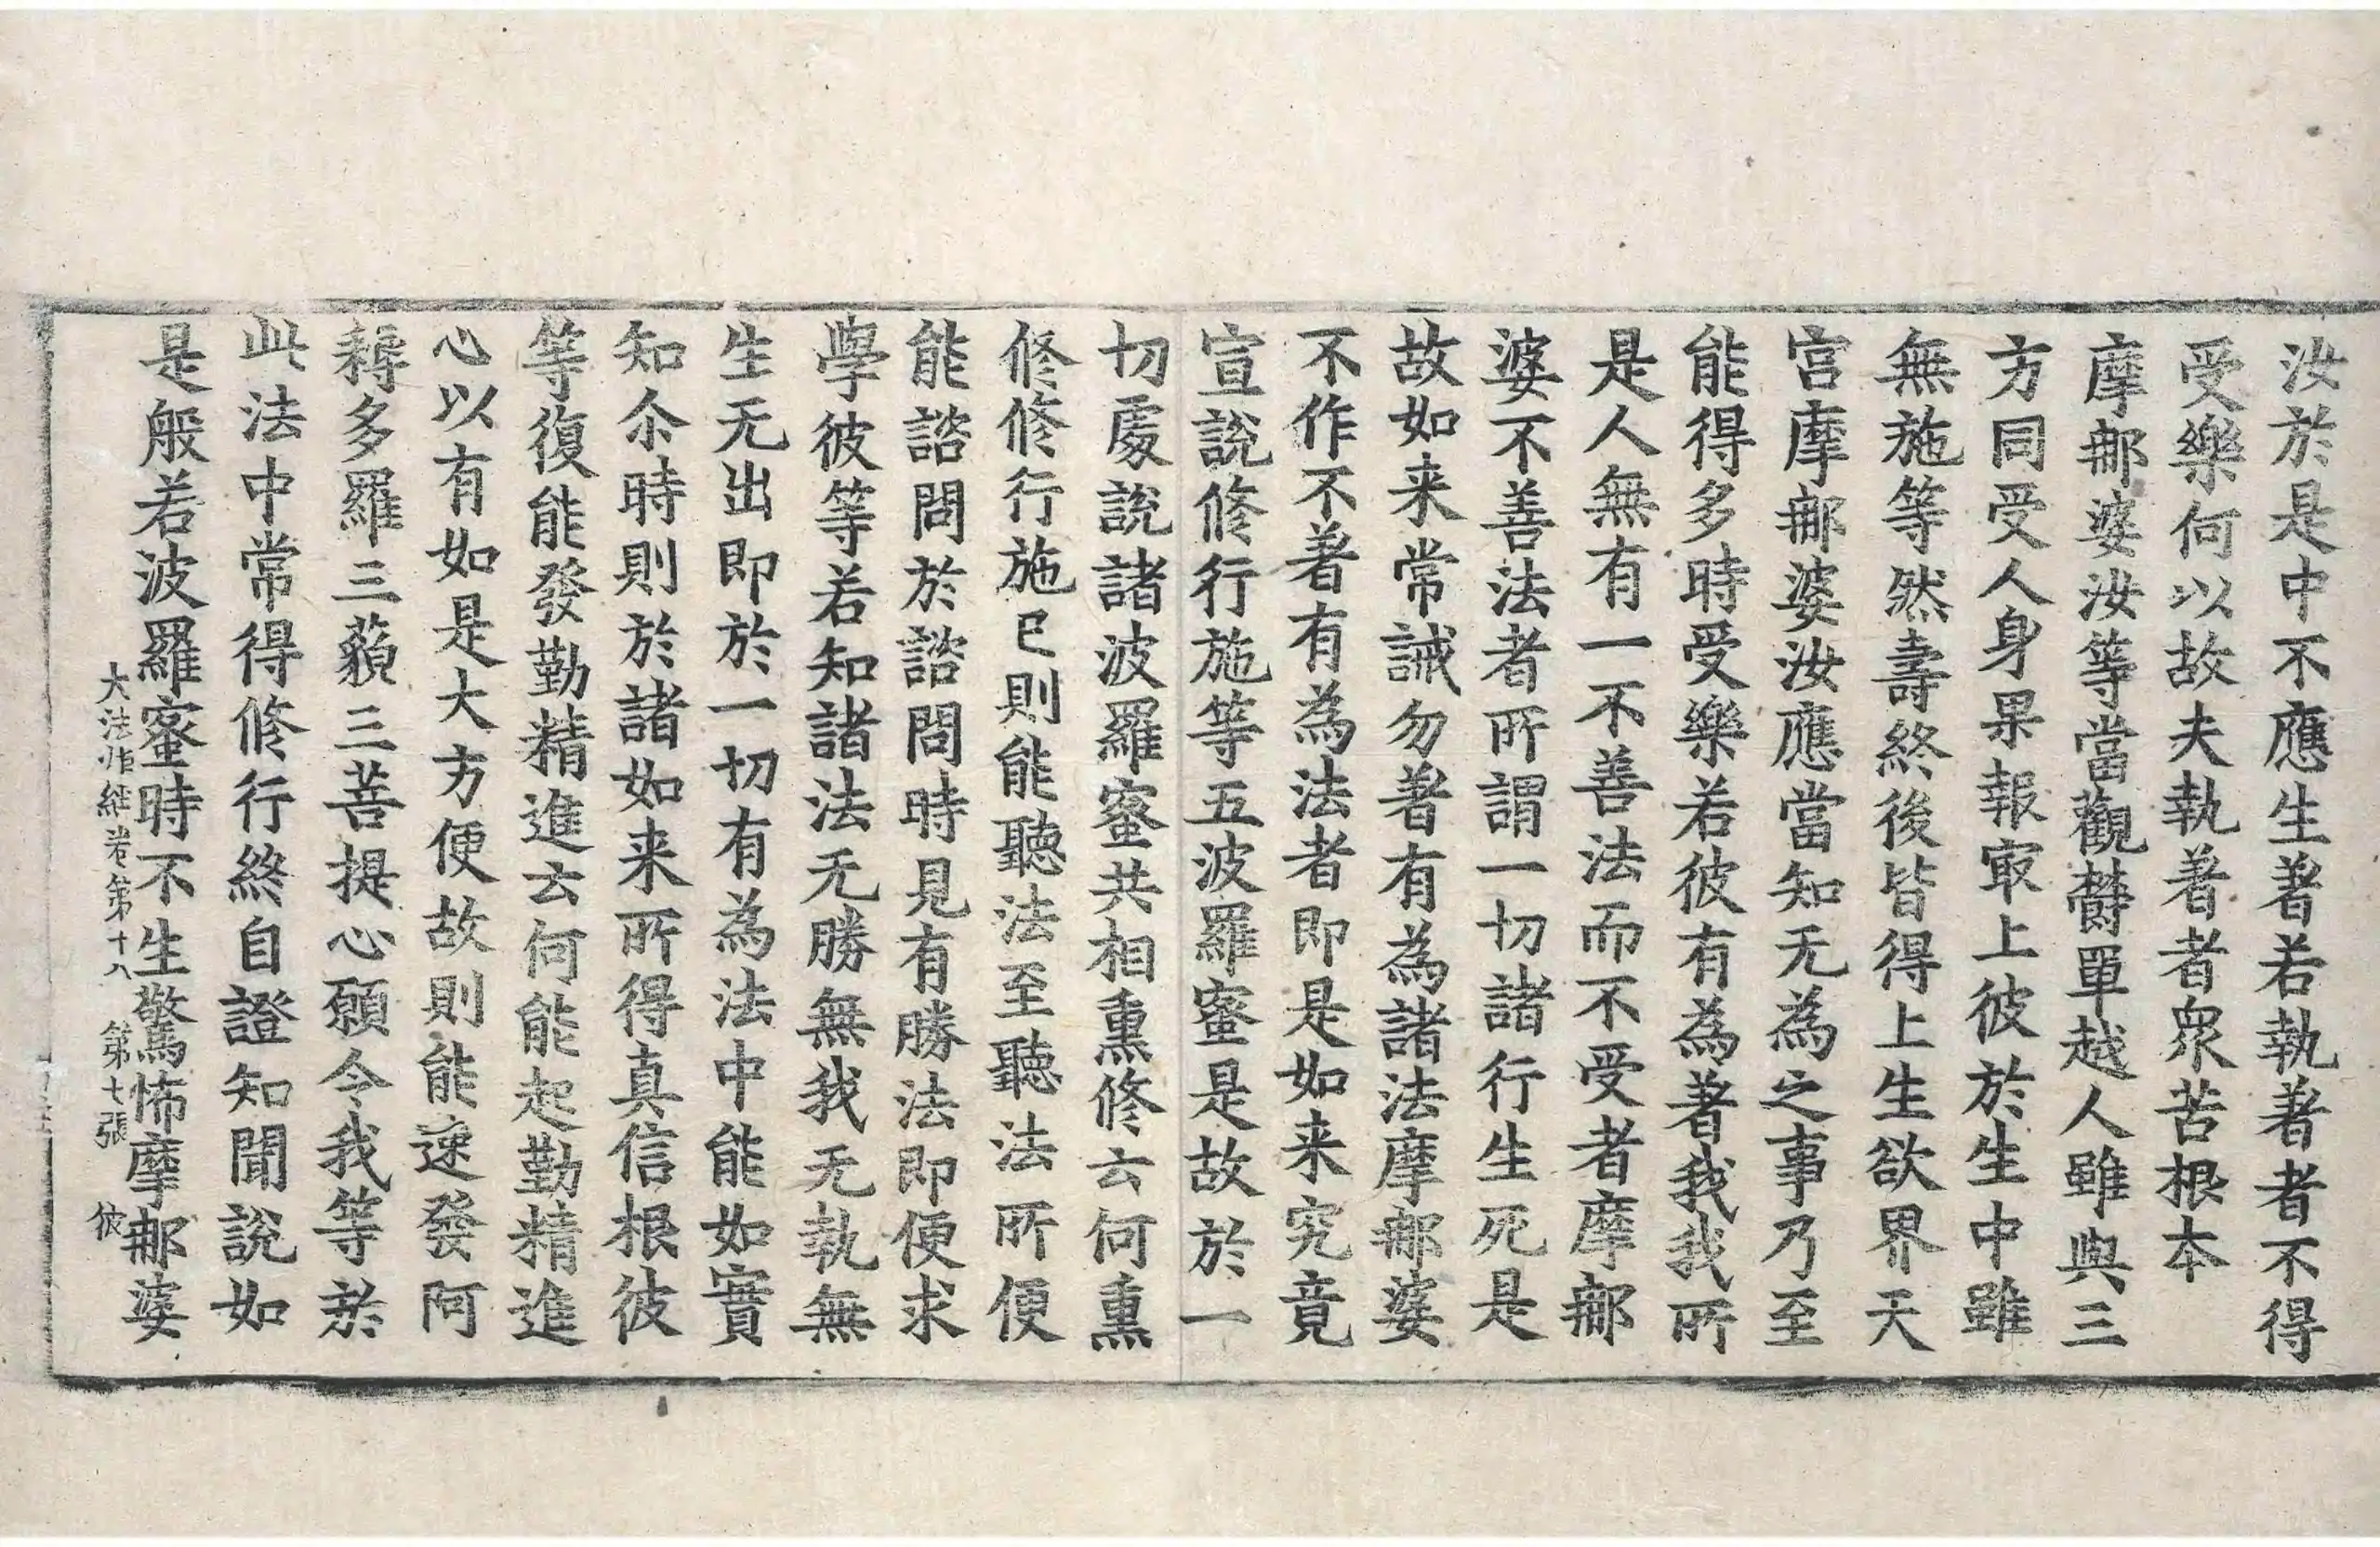 汝於是中不應生著若執著者不得
受樂何以故夫執著者衆苦根本
摩郍婆汝等當觀欝單越人雖與三
方同受人身果報㝡上彼於生中雖
無施等然壽終後皆得上生欲界天
宫摩郍婆汝應當知无為之事乃至
能得多時受樂若彼有為著我我所
是人無有一不善法而不受者摩郍
婆不善法者所謂一切諸行生死是
故如来常誡勿著有為諸法摩郍婆
不作不著有為法者即是如来究竟
宣說修行施等五波羅蜜是故於一
切處說諸波羅蜜共相熏修云何熏
修修行施已則能聽法至聽法所便
能諮問於諮問時見有勝法即便求
學彼等若知諸法无勝無我无執無
生无出即於一切有為法中能如實
知尒時則於諸如来所得真信根彼
等復能發勤精進云何能起勤精進
心以有如是大方便故則能速發阿
耨多羅三藐三菩提心願令我等於
此法中常得修行終自證知聞說如
是般若波羅蜜時不生驚怖摩郍婆
大法炬経卷第十八 第七張 彼